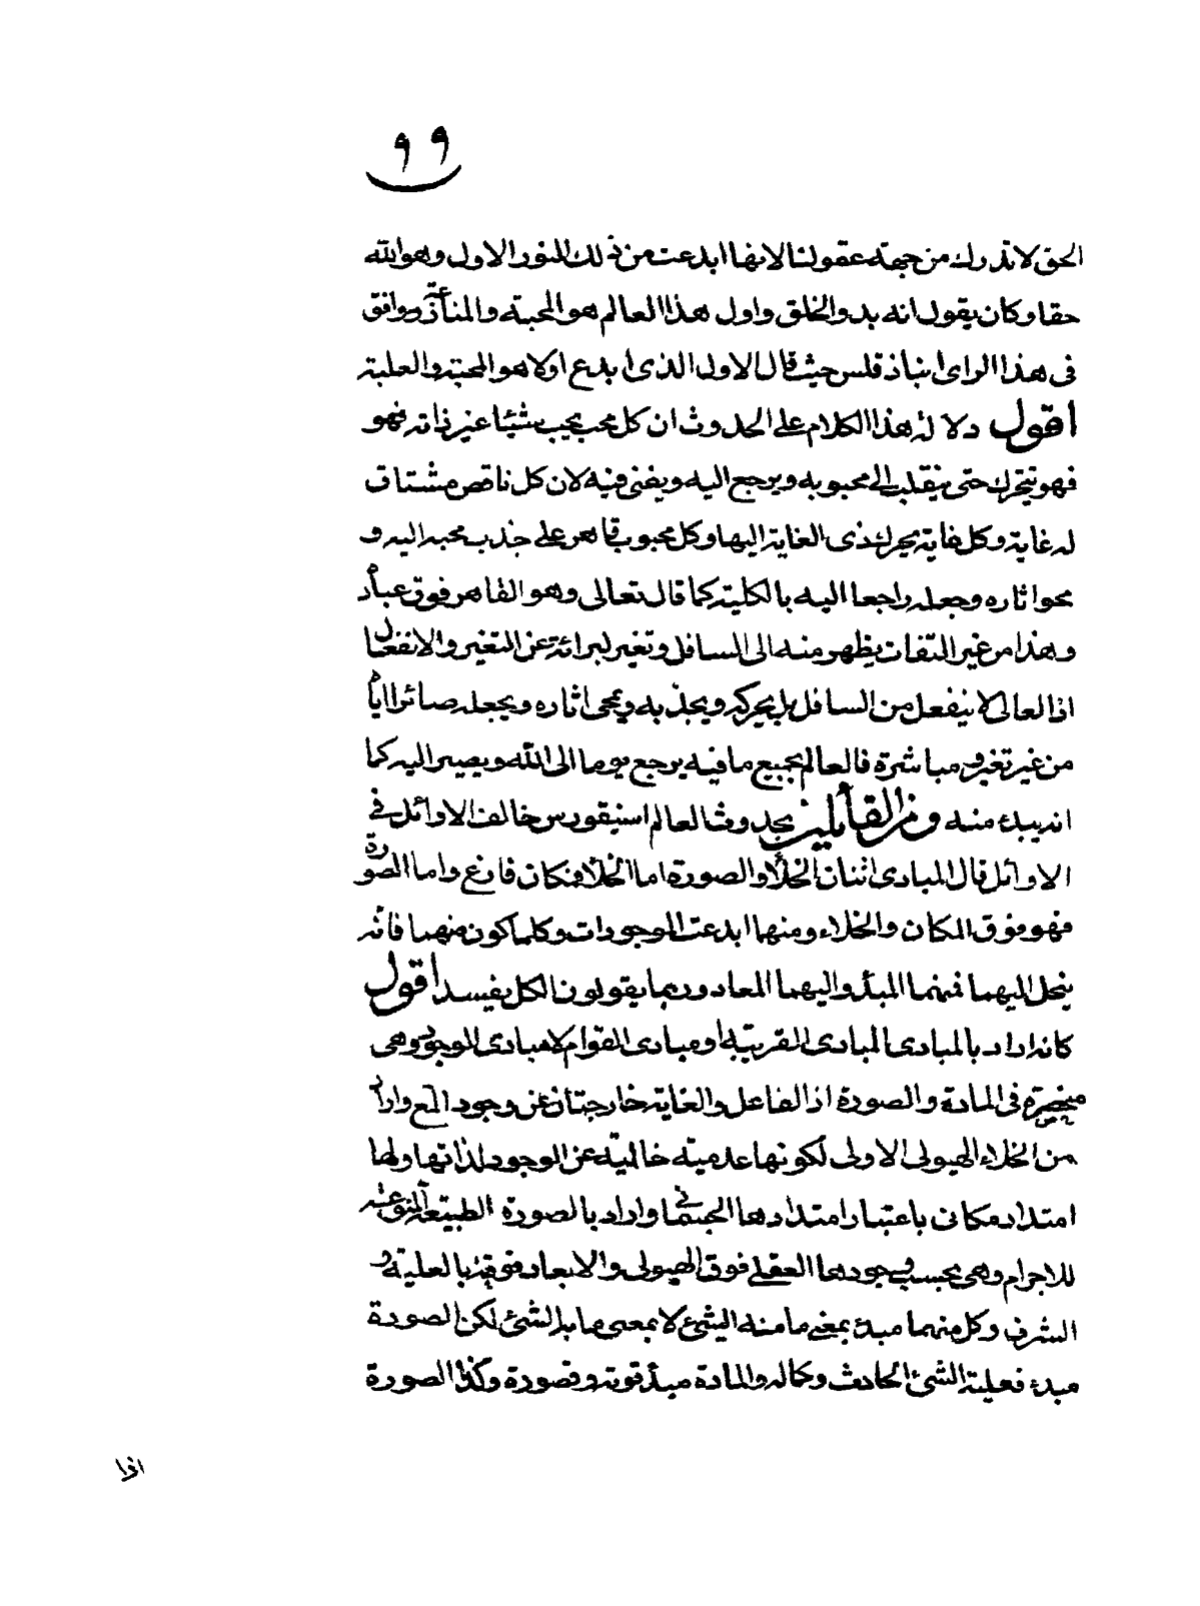 ٩٩
الحق لا تدرك من جهة عقولنا لانها ابدعت من ذلك النور الاول وهو الله
حقا وكان يقول انه بدو الخلق واول هذا العالم هو المحبة والمنازعة ووافق
فى هذا الراى انباذقلس حيث قال الاول الذى ابدع اولا هو المحبة والغلبة
اقول دلالة هذا الكلام على الحدوث ان كل محب يحب شيئا غير ذاته فهو
فهو تيحرك حتى ينقلب الى محبوبه ويرجع اليه ويفنى فيه لان كل ناقص مشتاق
له غاية وكل غاية يحرك ذى الغاية اليها وكل محبوب قاهر على جذب محبه اليه و
محو اثاره وجعله راجعا اليه بالكلية كما قال تعالى وهو القاهر فوق عباده
وهذا من غير التفات يظهر منه الى السافل وتغير لبرائته عن التغير والانفعال
اذ العالى لا ينفعل من السافل بل يحركه ويجذبه ويمحى اثاره ويجعله صائرا اياه
من غير تغير ومباشرة فالعالم بجميع ما فيه يرجع يوما الى الله ويصير اليه كما
انه يبدء منه ومن القائلين بحدوث العالم اسيقورس خالف الاوائل فى
الاوائل قال المبادى اثنان الخلأ والصورة اما الخلا فمكان فارغ واما الصورة
فهو فوق المكان والخلاء ومنهما ابدعت الموجودات وكلما كون منهما فانه
ينحل اليهما فمنهما المبدأ واليهما المعاد وربما يقولون الكل يفسد اقول
كانه اراد بالمبادى المبادى القريبة او مبادى القوام لا مبادى الوجود وهى
منحصرة فى المادة والصورة اذ الفاعل والغاية خارجتان عن وجود الشئ واراد
من الخلاء الهيولى الاولى لكونها عدمية خالية عن الوجود لذاتها ولها
امتداد مكانى باعتبار امتدادها الجسمانى واراد بالصورة الطبيعة النوعية
للاجرام وهى بحسب وجودها العقلى فوق الهيولى والابعاد فوقية بالعلية و
الشرف وكل منهما مبدء بمعنى ما منه الشئ لا بمعنى ما به الشئ لكن الصورة
مبدء فعلية الشئ الحادث وكماله والمادة مبدأ قوته وقصوره وكذا الصورة
اذا